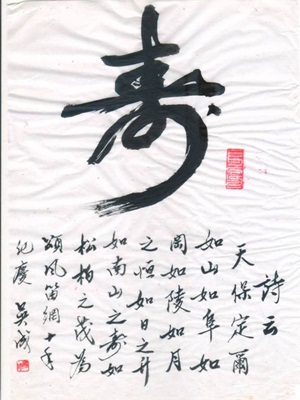 寿
詩云
天保定爾
如山如阜如
岡如陵如月
之恒如日之升
如南山之寿如
松柏之茂為
頌风笛網十年
紀慶 吴